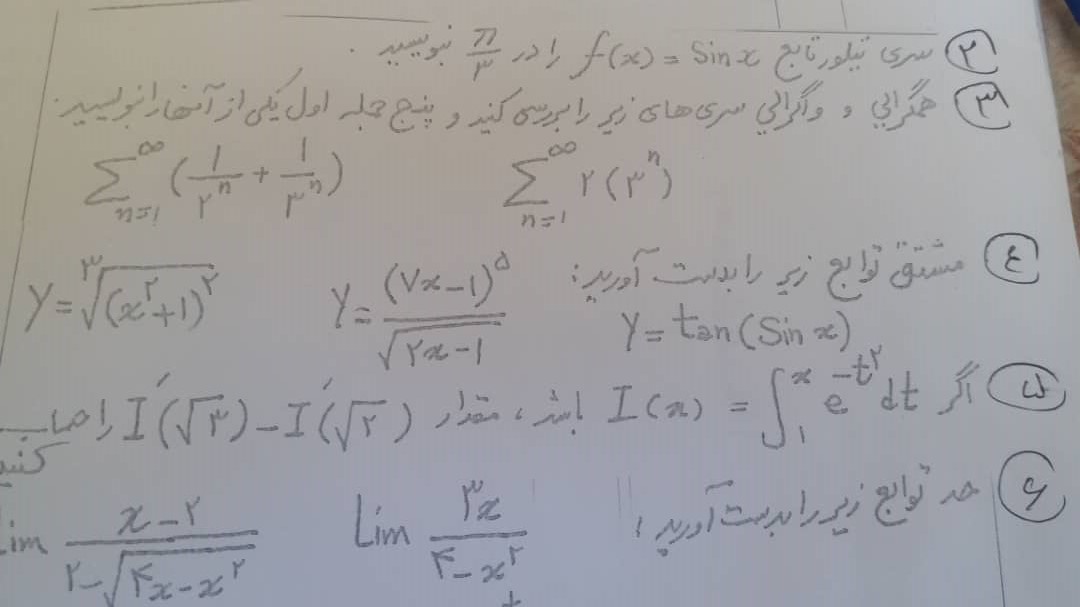 ۲ سری تیلور تابع f(x) = Sin x را در π/۳ بنویسید.
۳ همگرائی و واگرائی سری های زیر را بررسی کنید و پنج جمله اول یکی از آنها را بنویسید:
∑_{n=1}^{∞} ۲(۳^n)    ∑_{n=1}^{∞} (1/۲^n + 1/۳^n)
۴ مشتق توابع زیر را بدست آورید:
y = tan(Sin x)    y = (۷x-1)^۵ / √(۲x-1)    y = ∛((x^۲+1)^۲)
۵ اگر I(x) = ∫_1^x e^{-t^۲} dt باشد، مقدار I′(√۳) - I′(√۲) را
کنید
۶ حد توابع زیر را بدست آورید:
Lim ۳x / (۴-x^۲)    Lim (x-۲) / (۲-√(۴x-x^۲))